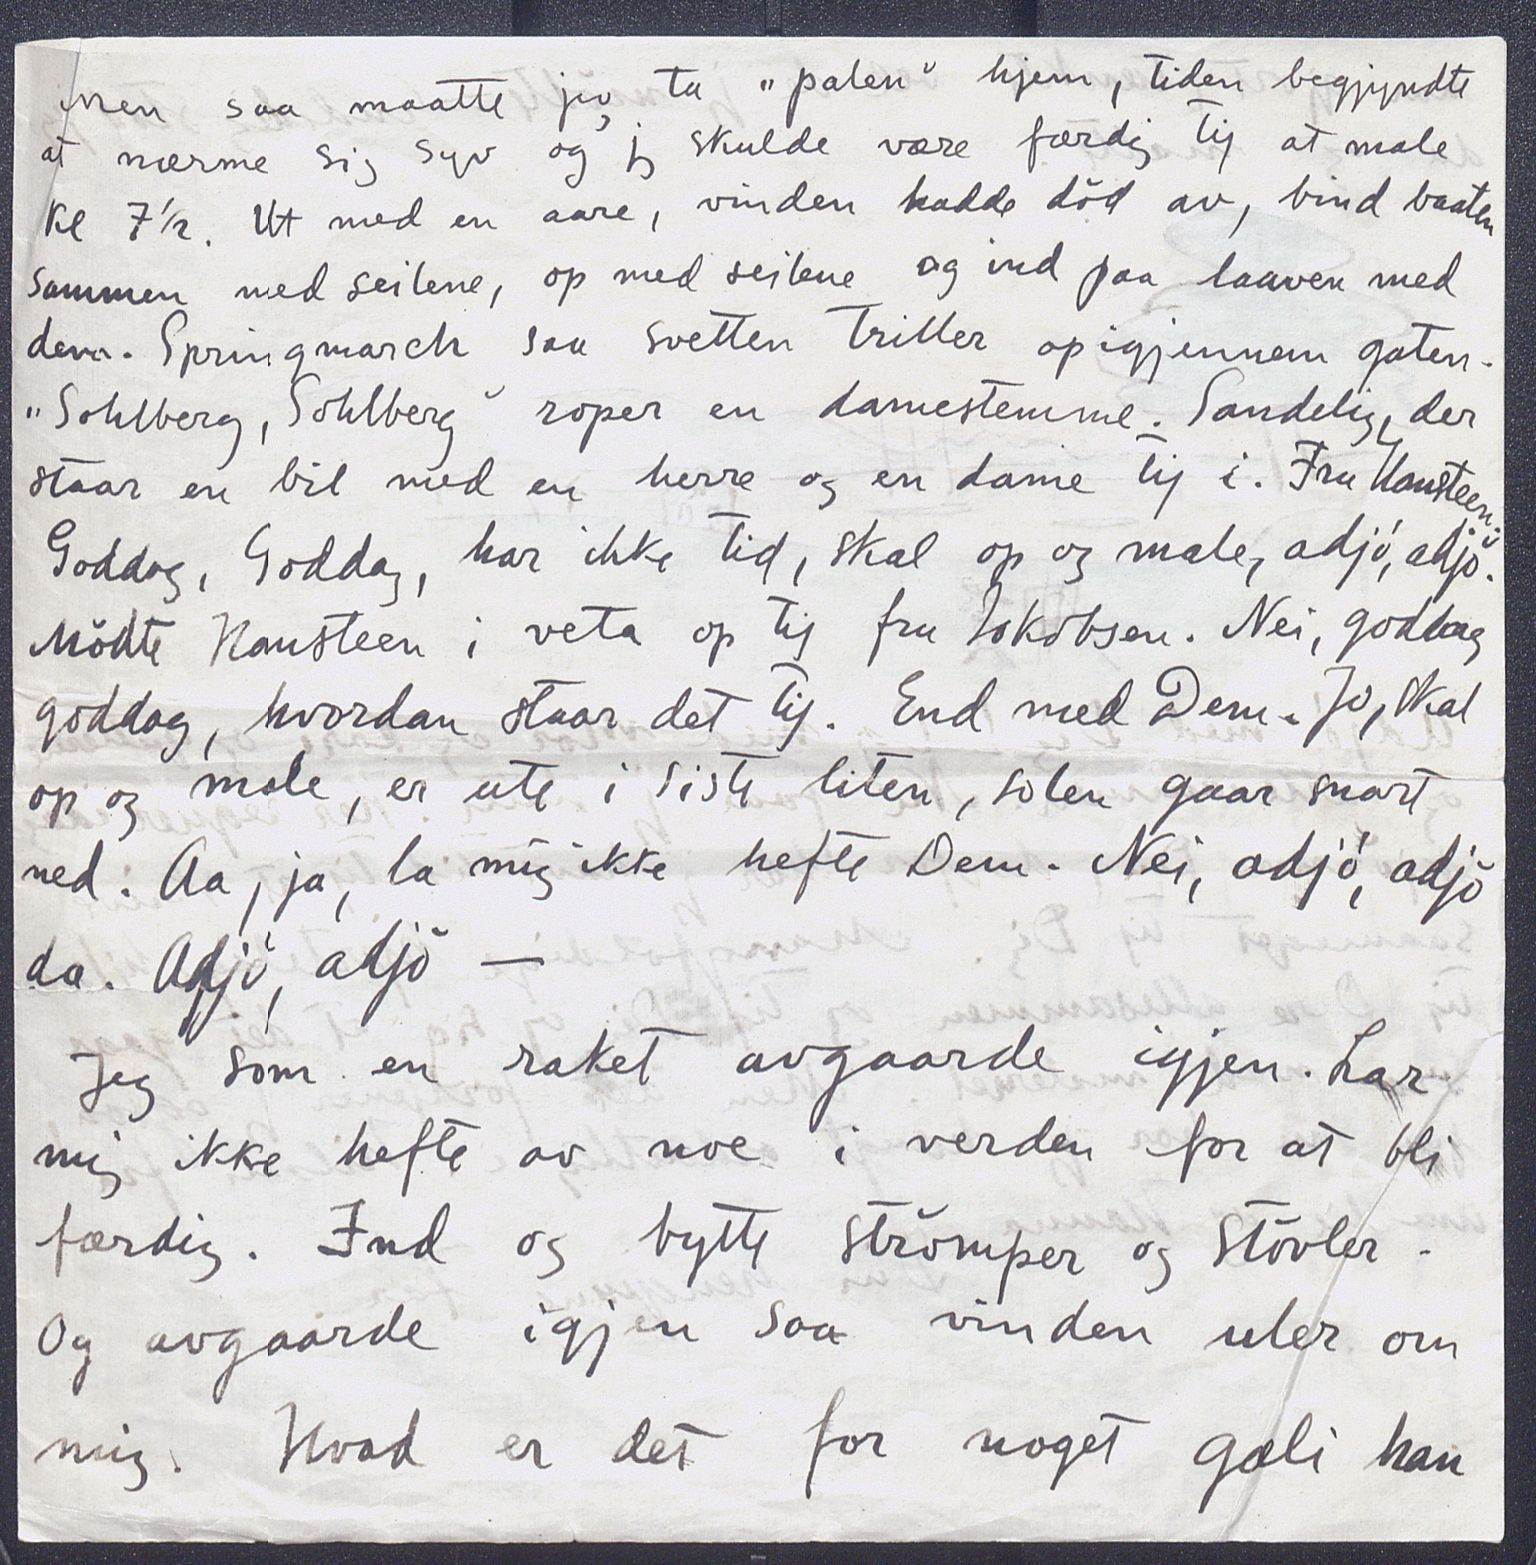 Men saa maatte jeg ta „palen" hjem, tiden begjyndte
at nærme sig syv og jeg skulde være færdig til at male
Kl 7½. Ut med en aare, vinden hadde död av, bind baaten
sammen med seilene, op med seilene og ind paa laaven med
dem. Springmarch saa svetten triller op igjennem gaten.
„Sohlberg, Sohlberg" roper en damestemme. Sandelig, der
staar en bil med en herre og en dame til i. Fru Hansteen:
Goddag, Goddag, har ikke tid, skal op og male, adjö, adjö.
Mödte Hansteen i veta op til fru Jakobsen. Nei, goddag
goddag, hvordan staar det til. End med Dem. Jo, skal
op og male, er ute i siste liten, solen gaar snart
ned. Aa, ja, la mig ikke hefte Dem. Nei, adjö, adjö
da. Adjö, adjö —
Jeg som en raket avgaarde igjen. Lar
mig ikke hefte av noe i verden for at bli
færdig. Ind og bytte strömper og stövler.
Og avgaarde igjen saa vinden uler om
mig. Hvad er det for noget gali han